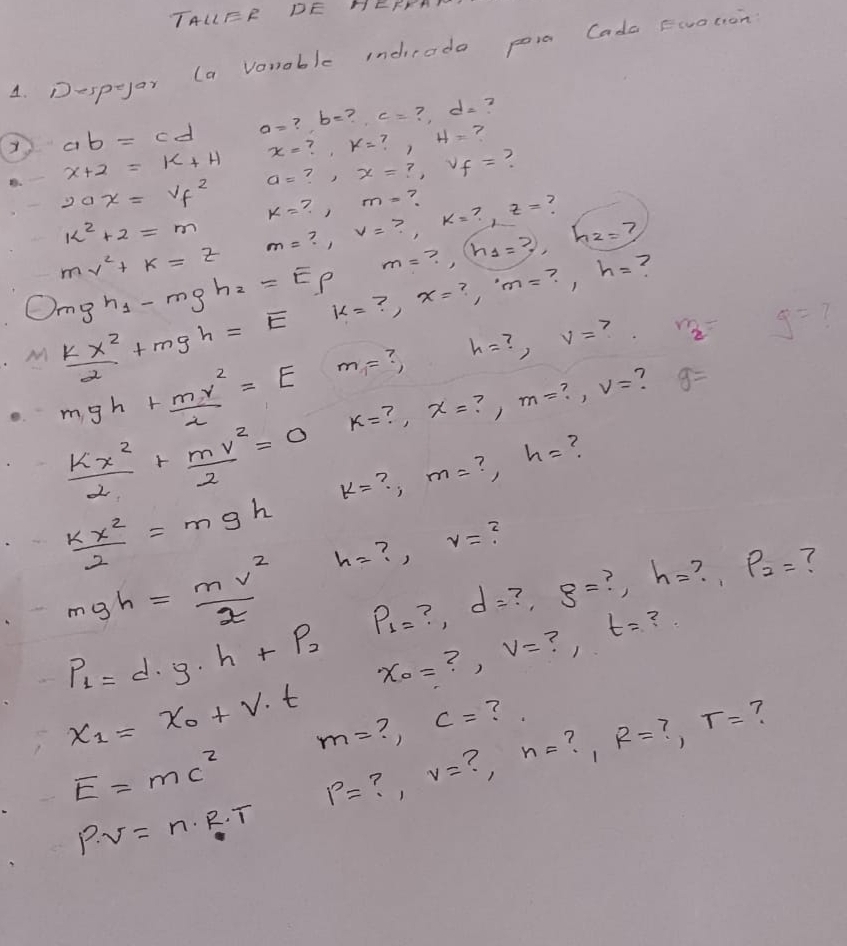 TALLER DE
1. Despejar la variable indicada para Cada Ecuación:
ab = cd a=? b=? c=?, d=?
x+2 = K+H x=?, K=?, H=?
2ax = Vf² a=?, x=?, Vf=?
K²+2 = m K=?, m=?
mv²+K = Z m=?, v=?, K=?, Z=?
mgh₁ - mgh₂ = Ep m=?, h₁=?, h₂=?
Kx²/2 + mgh = E K=?, x=?, m=?, h=?
mgh + mv²/2 = E m=?, h=?, v=? g=?
Kx²/2 + mv²/2 = 0 K=?, x=?, m=?, v=? g=
Kx²/2 = mgh K=?, m=?, h=?
mgh = mv²/2 h=?, v=?
P₁ = d.g.h + P₂ P₁=?, d=?, g=?, h=?, P₂=?
X₁ = X₀ + V.t X₀=?, V=?, t=?.
E = mc² m=?, c=?.
P.V = n.R.T P=?, v=?, n=?, R=?, T=?